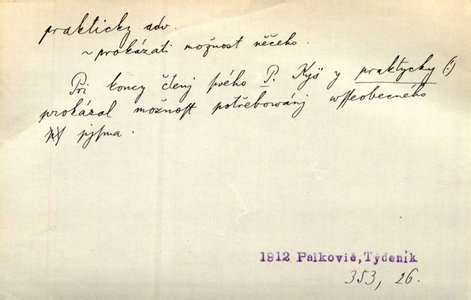 prakticky adv.
~ prokázati možnost něčeho.
Při koncy čtenj svého P. Kyš y praktycky (!)
prokázal možnost potřebowánj wsseobecného
pjsma.
1812 Palkovič, Týdeník
353, 26.